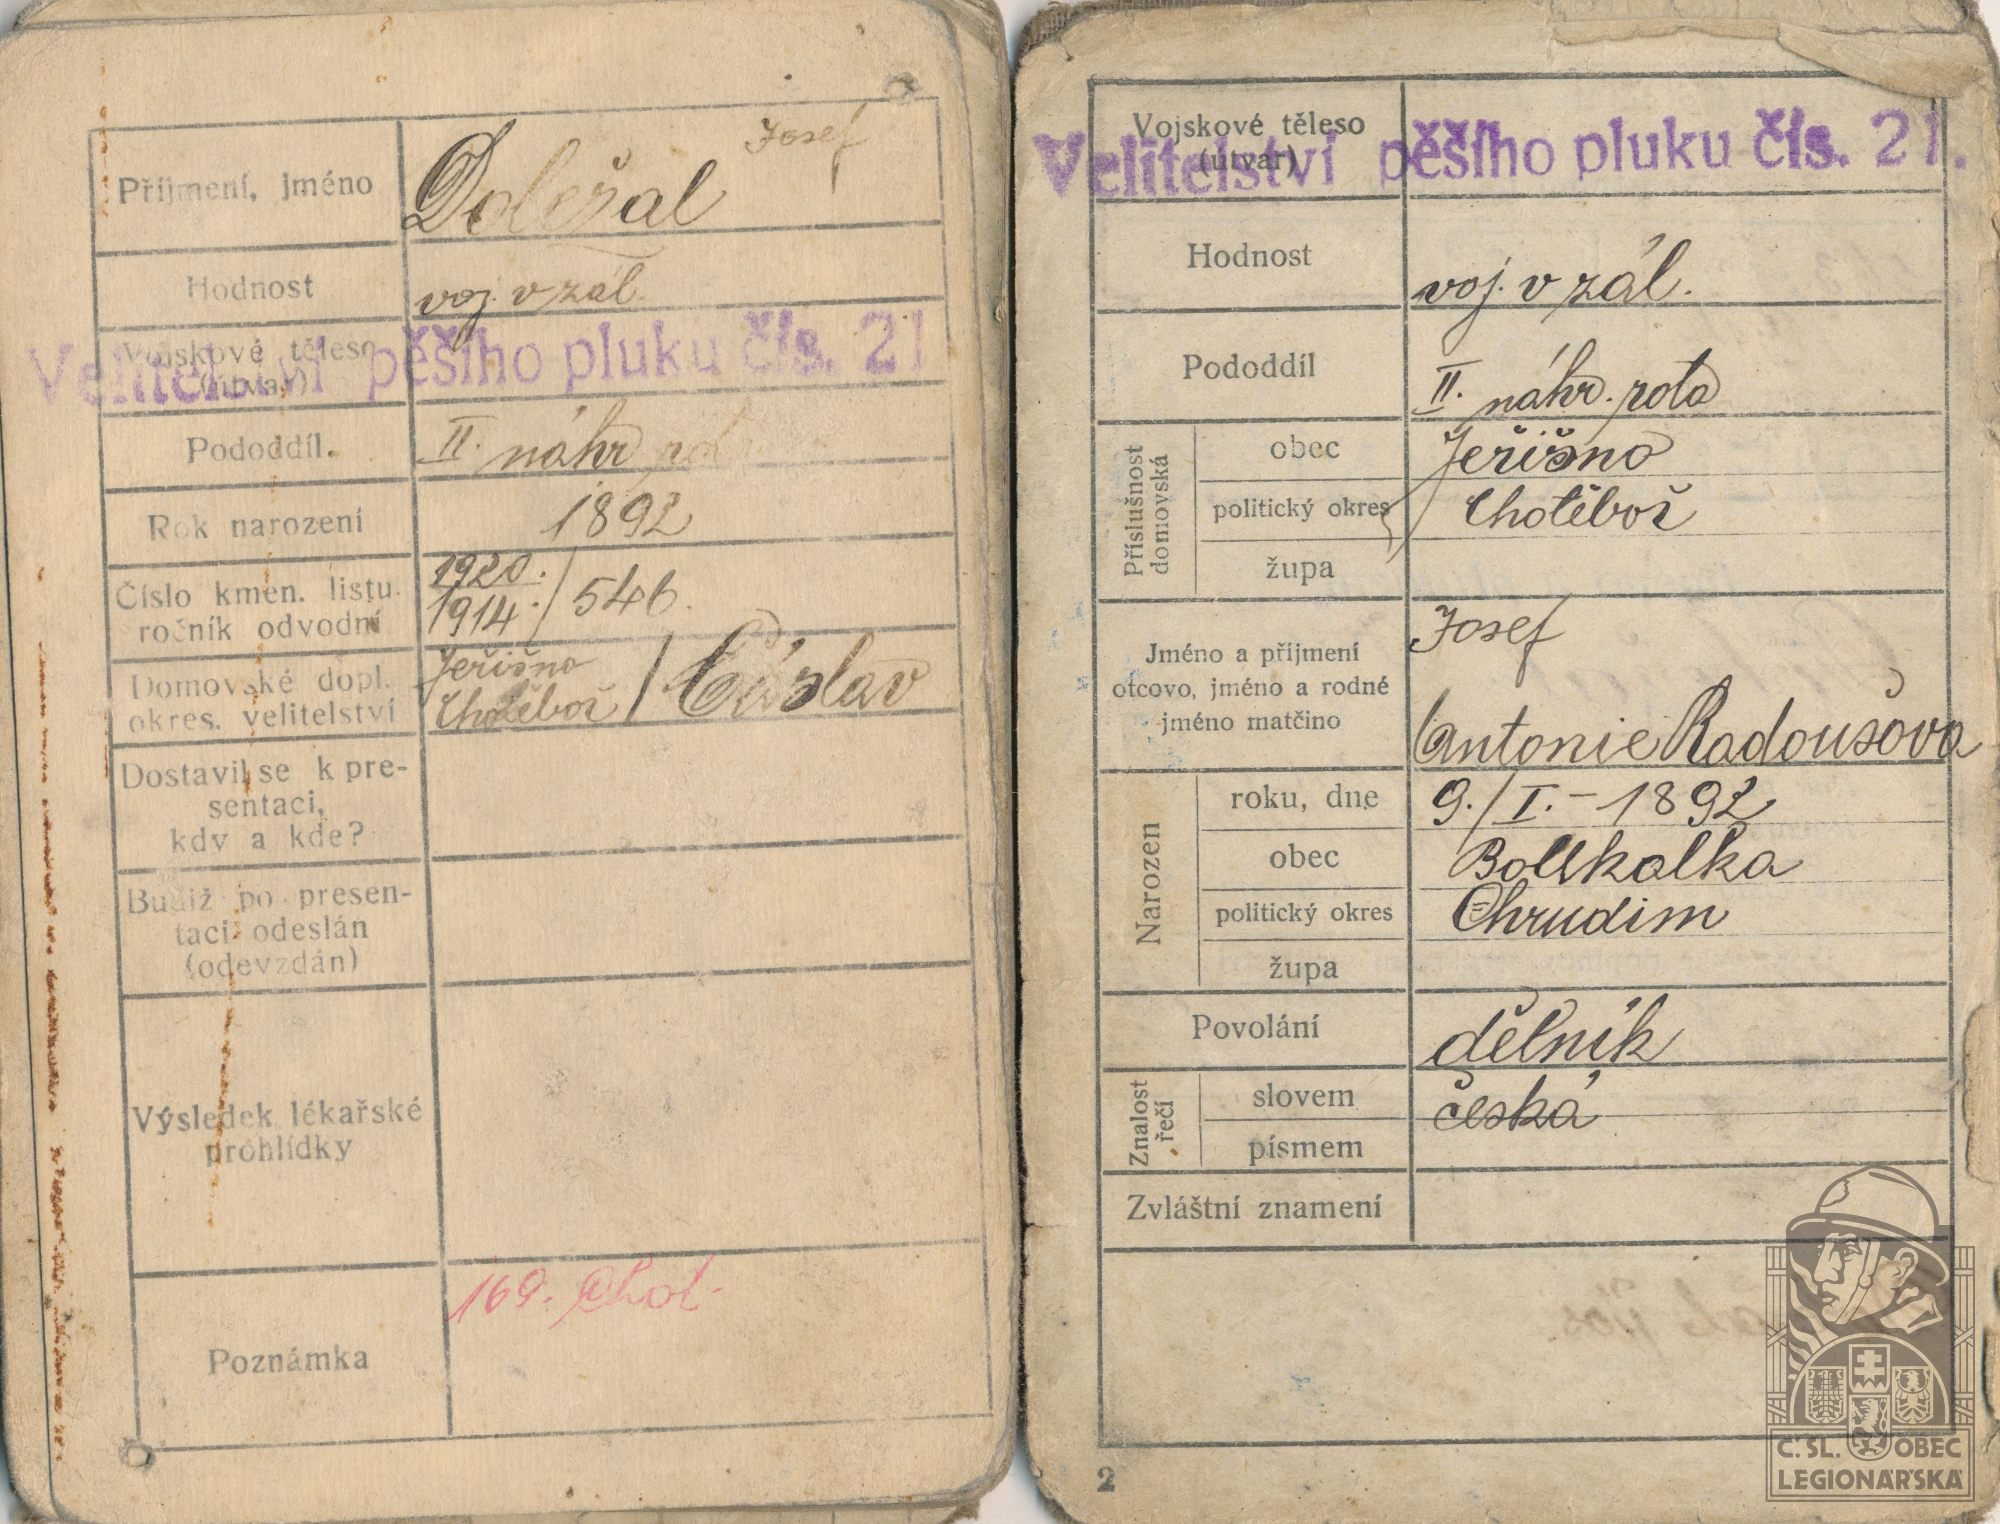 Příjmení, jméno
Doležal Josef
Hodnost
voj. v zál.
Vojskové těleso
(útvar)
Velitelství pěšího pluku čís. 21
Pododdíl.
II. náhr. rot
Rok narození
1892
Číslo kmen. listu
ročník odvodní
1920.
1914. / 546.
Domovské dopl.
okres. velitelství
Jeřišno
Chotěboř / Čáslav
Dostavil se k pre-
sentaci,
kdy a kde?
Budiž po presen-
taci odeslán
(odevzdán)
Výsledek lékařské
prohlídky
Poznámka
169. Chot.
Vojskové těleso
(útvar)
Velitelství pěšího pluku čís. 21.
Hodnost
voj. v zál.
Pododdíl
II. náhr. rota
Příslušnost
domovská
obec
Jeřišno
politický okres
Chotěboř
župa
Jméno a příjmení
otcovo, jméno a rodné
jméno matčino
Josef
Antonie Radoušova
Narozen
roku, dne
9./I. – 1892
obec
politický okres
Chrudim
župa
Povolání
dělník
Znalost
řečí
slovem
česká
písmem
Zvláštní znamení
2
Č. SL. OBEC
LEGIONÁŘSKÁ